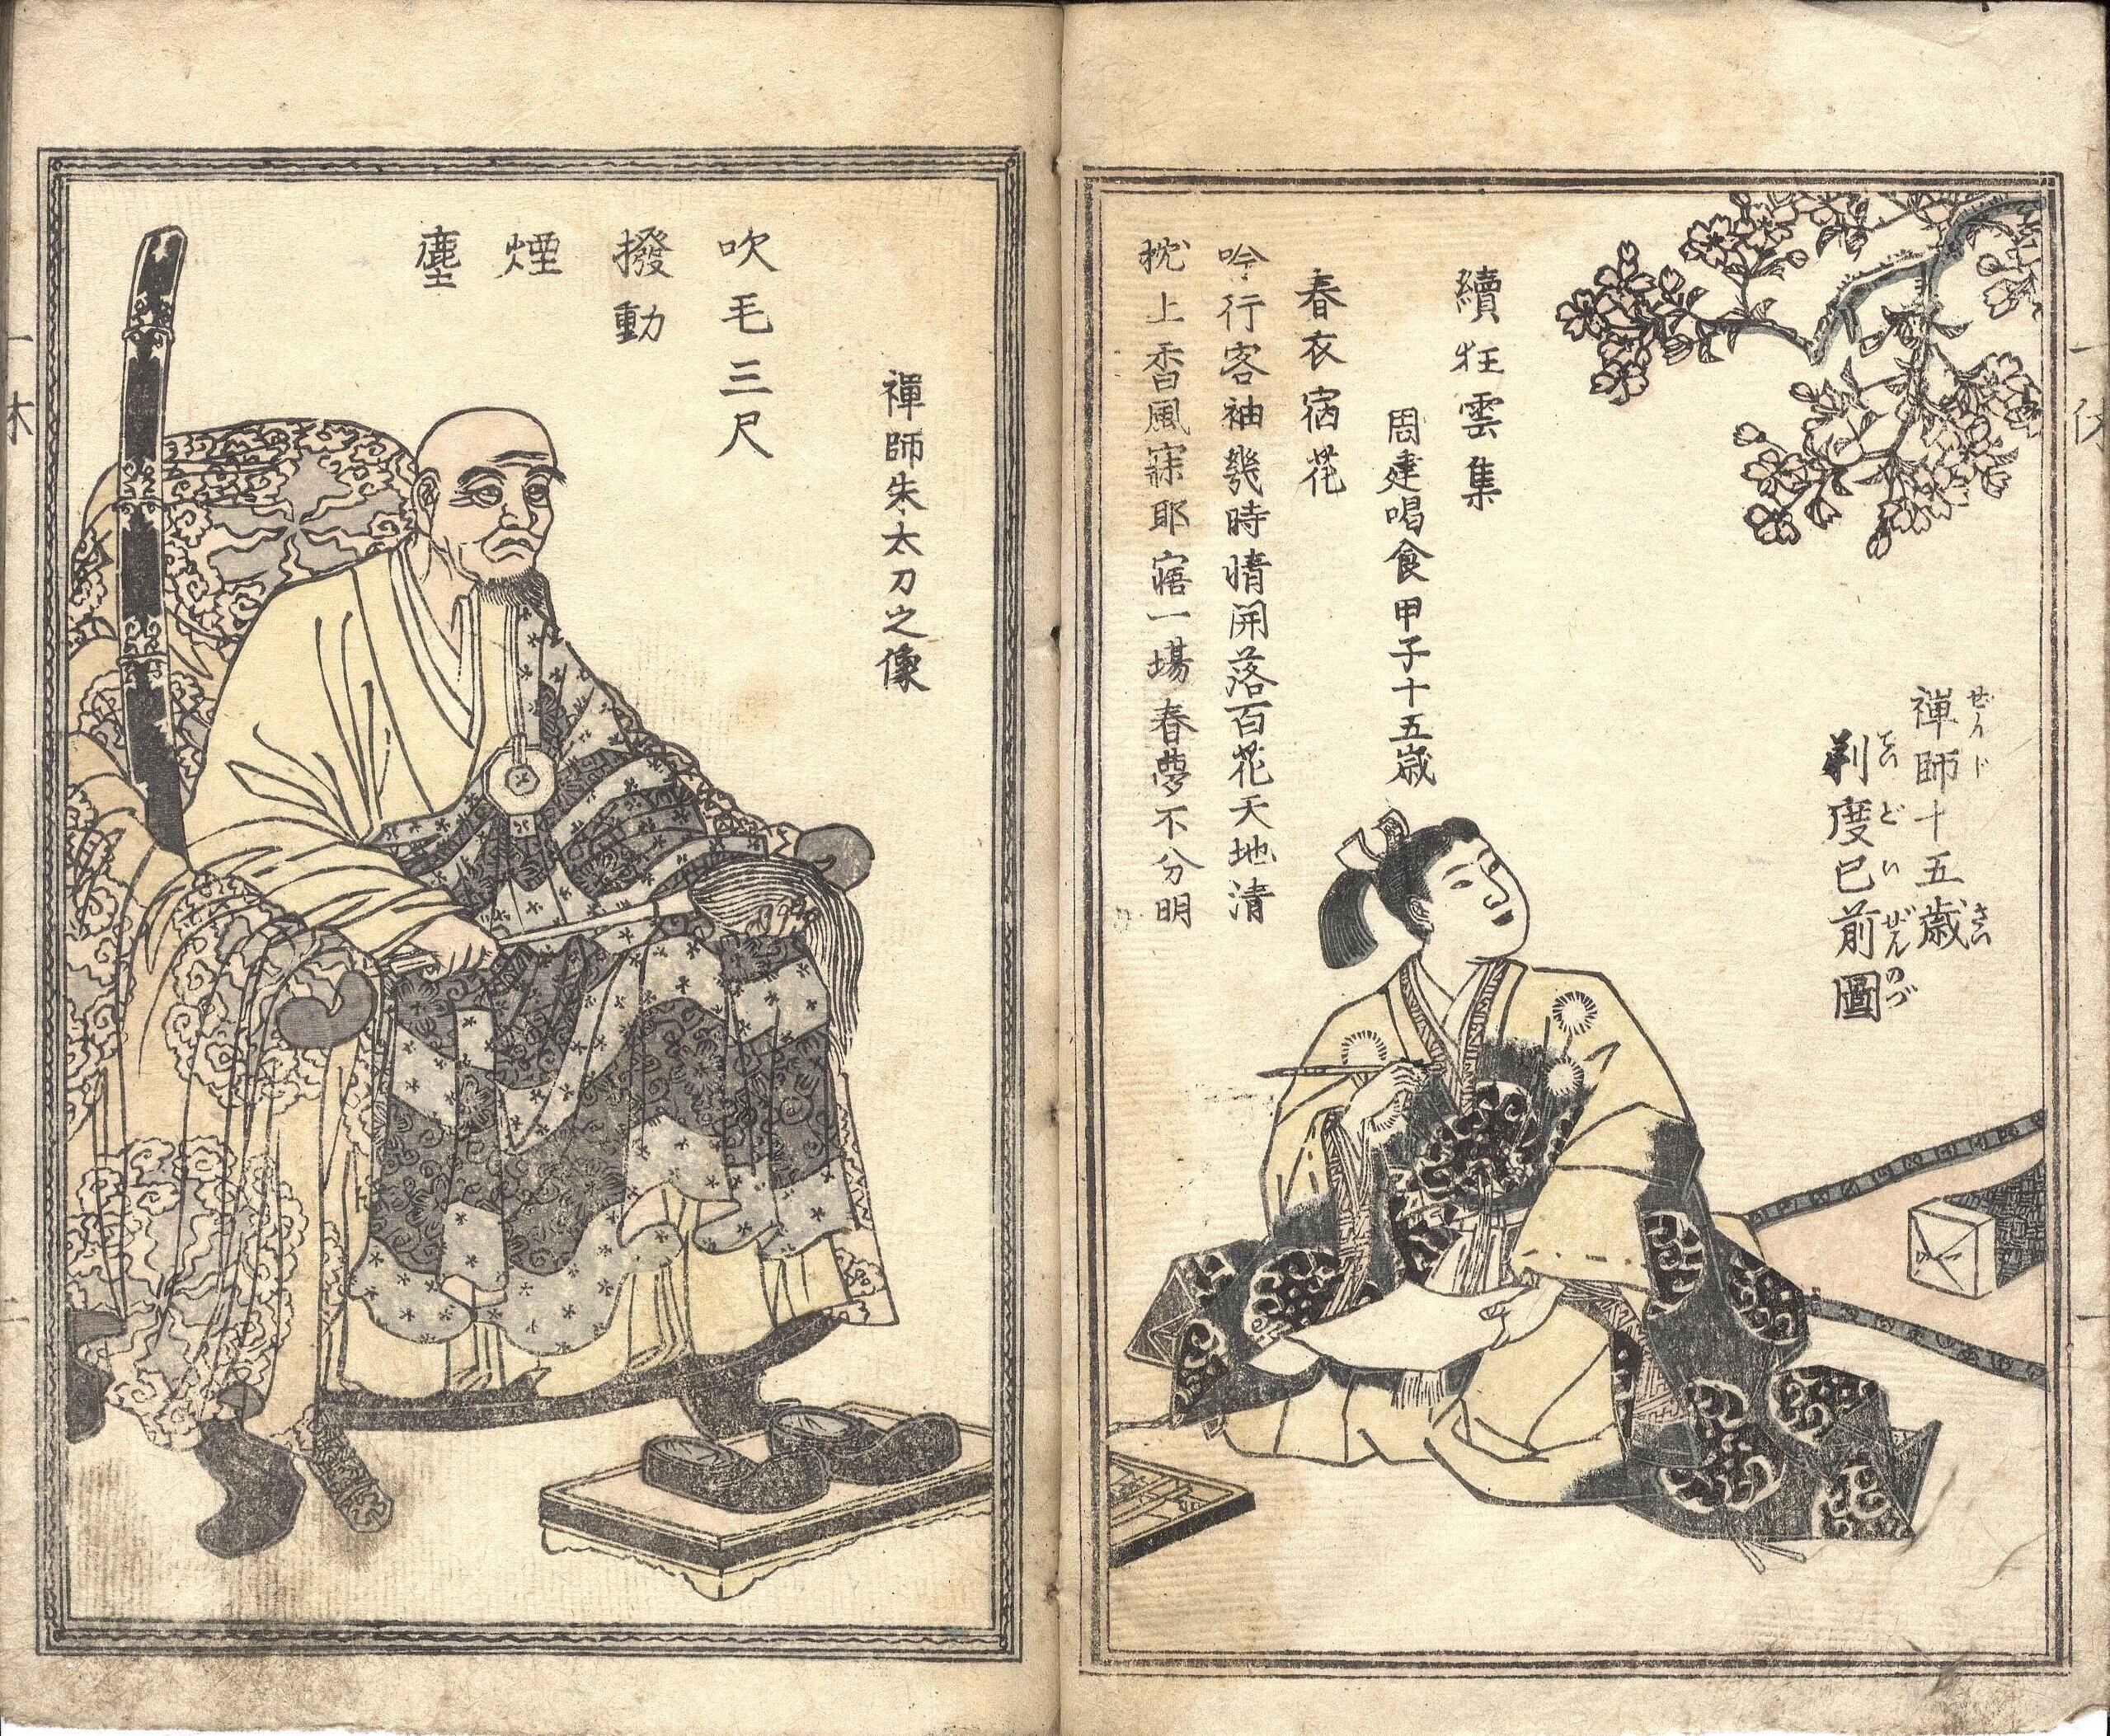 禪師十五歳
ぜんじ さい
剃度已前圖
ていどいぜんのづ
續狂雲集
周建喝食甲子十五歳
春衣宿花
吟行客袖幾時情開落百花天地清
枕上香風寐耶寤一場春夢不分明
禪師朱太刀之像
吹毛三尺
撥動
煙
塵
一休